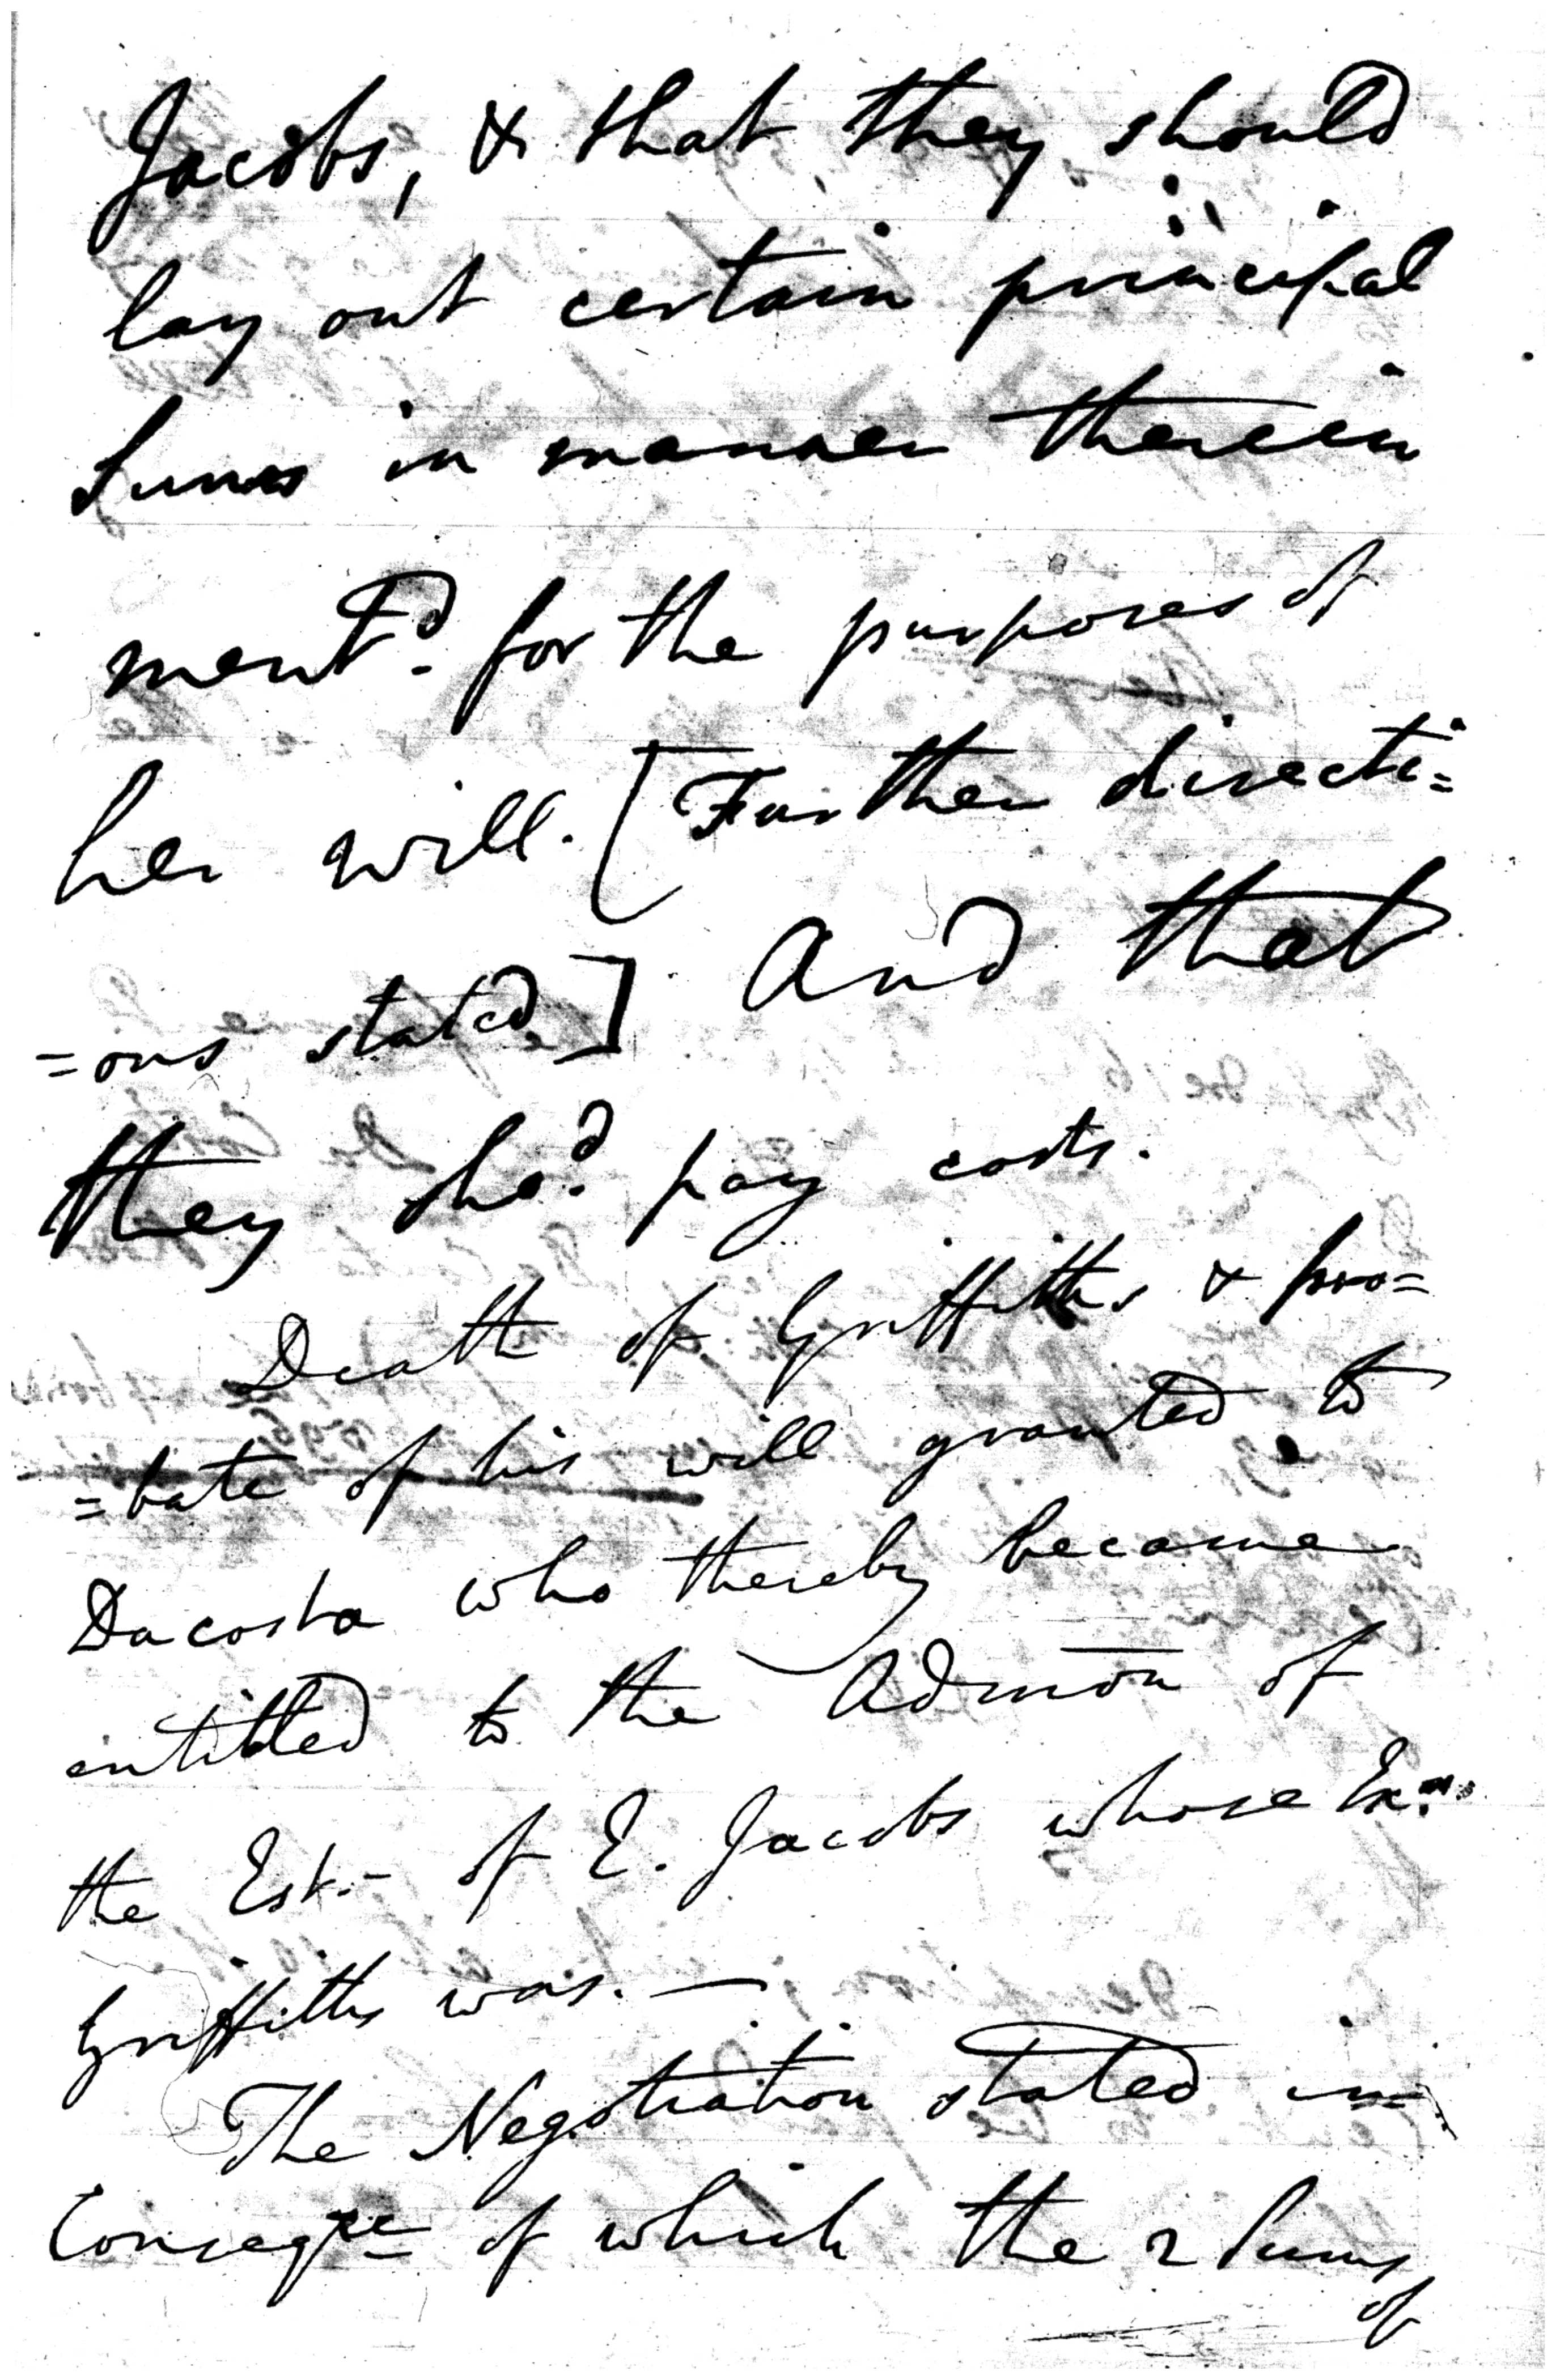 Jacobs, & that they should
lay out certain principal
Sums in manner therein
ment.d for the purposes of
her will. [Further directi=
=ons stated.] And that
they sho.d pay costs.
Death of Griffiths & pro=
=bate of his will granted to
Dacosta who thereby became
entitled to the Admon of
the Est.- of E. Jacobs whose Ex.or
Griffiths was. —
The Negotiation stated in
Conseq.ce of which the 2 Sums
of